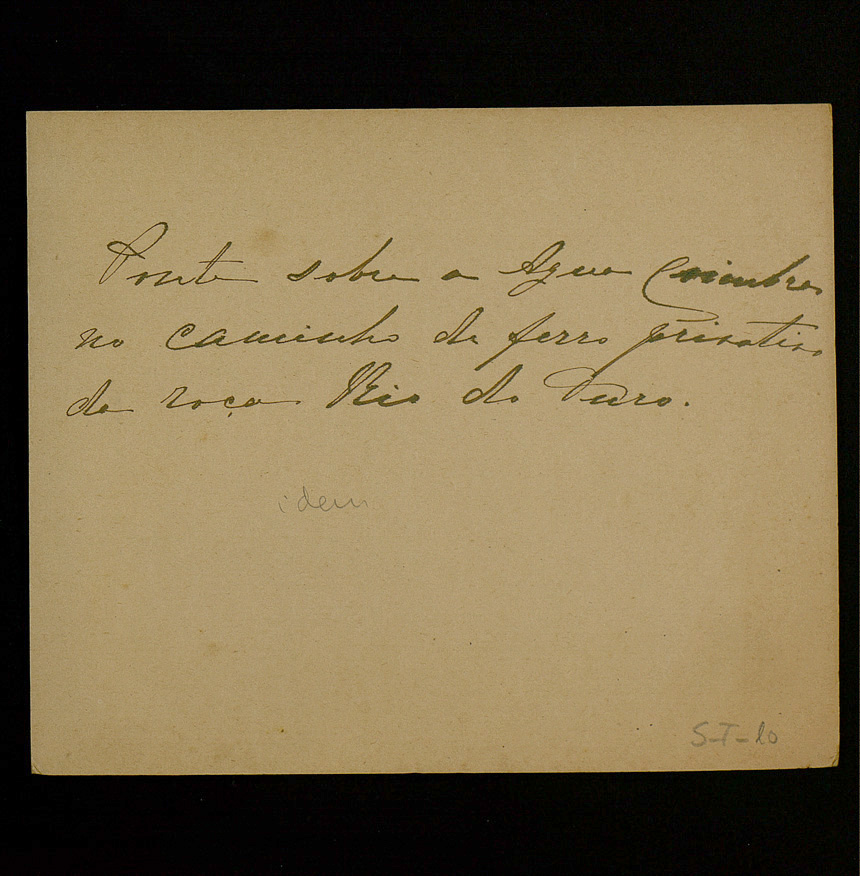 Ponte sobre a Agua Coimbra
no caminho de ferro privativo
da roça Rio do Ouro.
idem
S-T-20